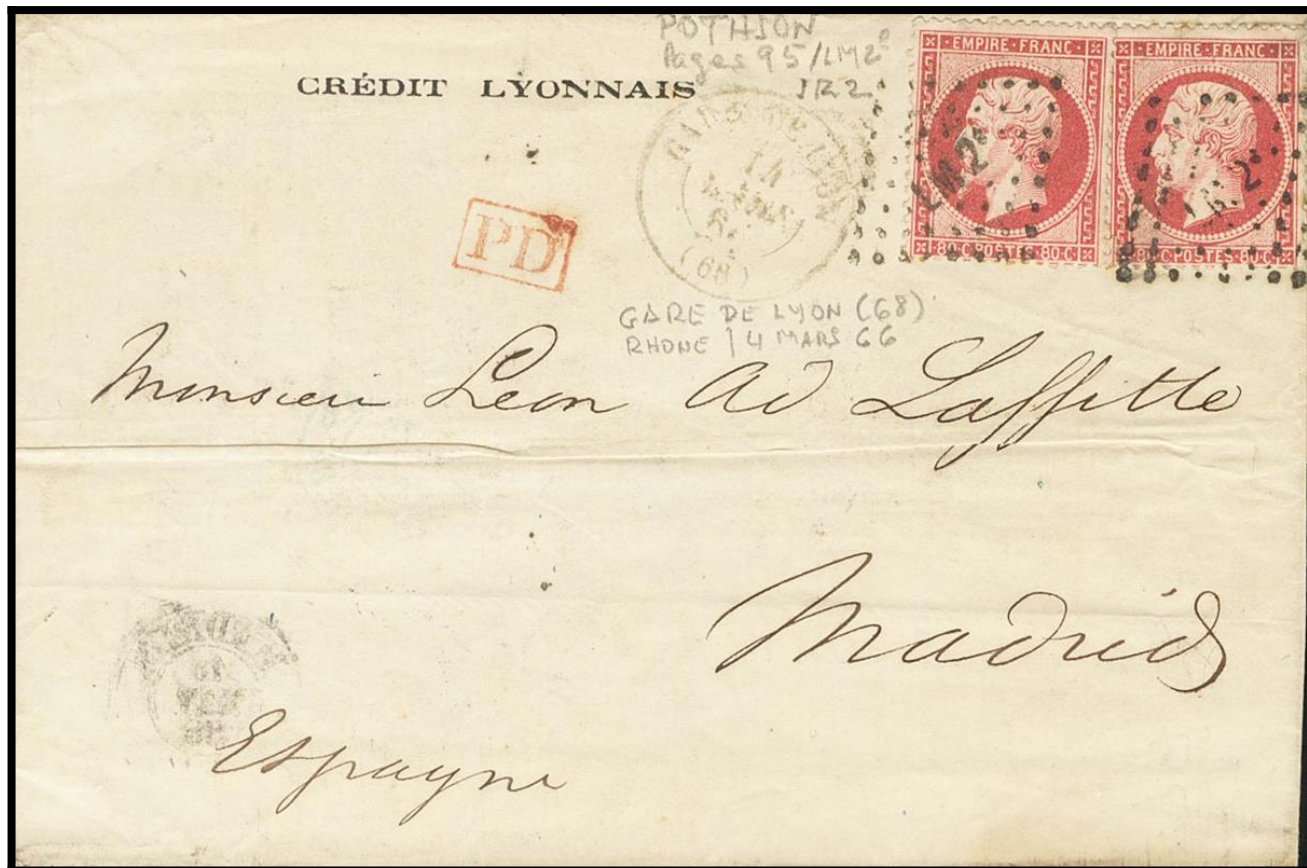 POTHION
Pages 95/LM2
IR2
CRÉDIT LYONNAIS
EMPIRE FRANC
EMPIRE FRANC
LM2
80·C·POSTES·80·C
80·C·POSTES·80·C
GARE DE LYON
14
MARS
(68)
PD
GARE DE LYON (68)
RHONE 14 MARS 66
Monsieur Leon Ad Laffitte
Madrid
Espagne